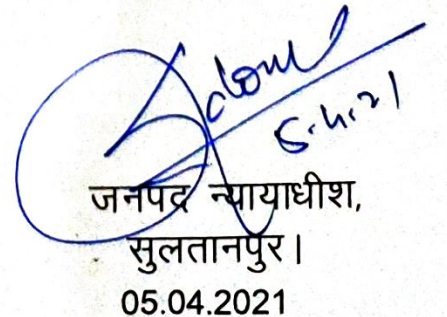 5.4.21
जनपद न्यायाधीश,
सुलतानपुर।
05.04.2021